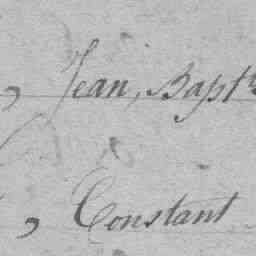 , Jean, Bapt^te
, Constant